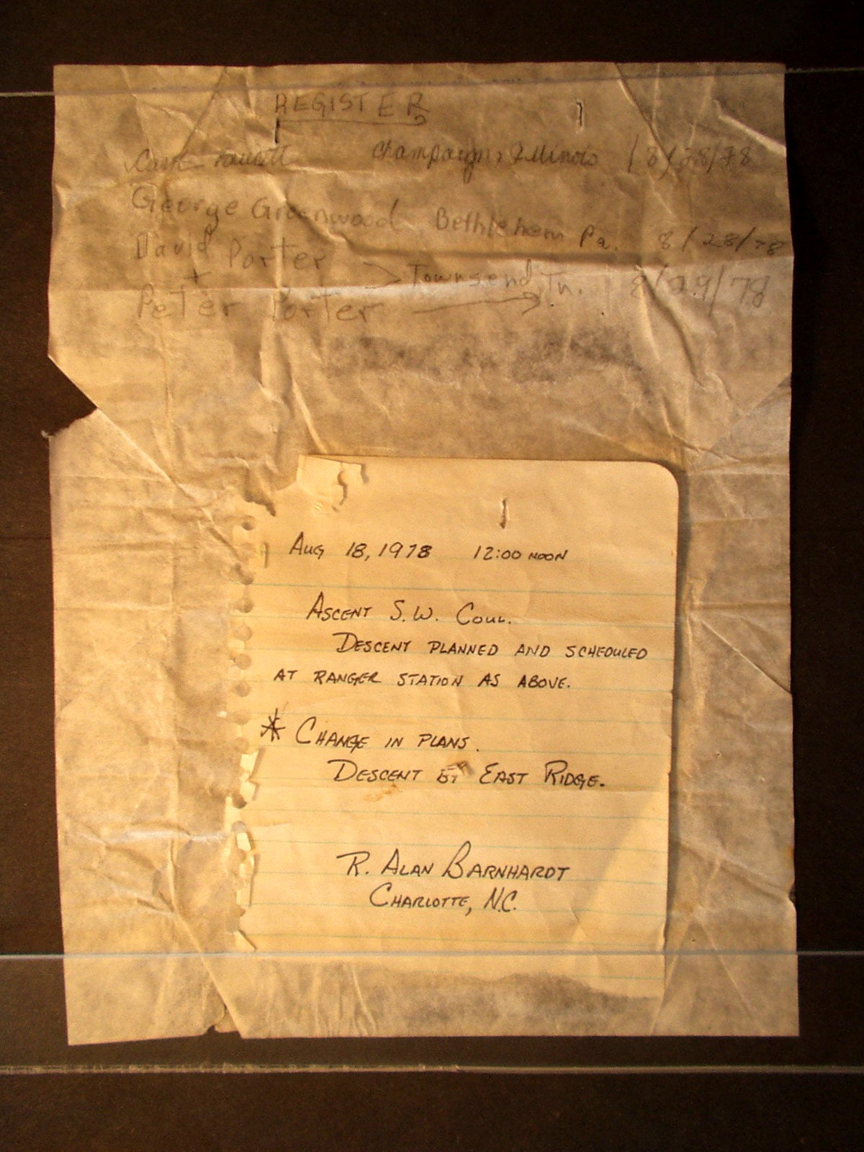 REGISTER
Champaign, Illinois 8/28/78
George Greenwood Bethlehem Pa. 8/28/78
David Porter
+ Townsend, Tn. 8/29/78
Peter Porter
Aug 18, 1978 12:00 NOON
ASCENT S.W. COUL.
DESCENT PLANNED AND SCHEDULED
AT RANGER STATION AS ABOVE.
* CHANGE IN PLANS.
DESCENT BY EAST RIDGE.
R. ALAN BARNHARDT
CHARLOTTE, N.C.